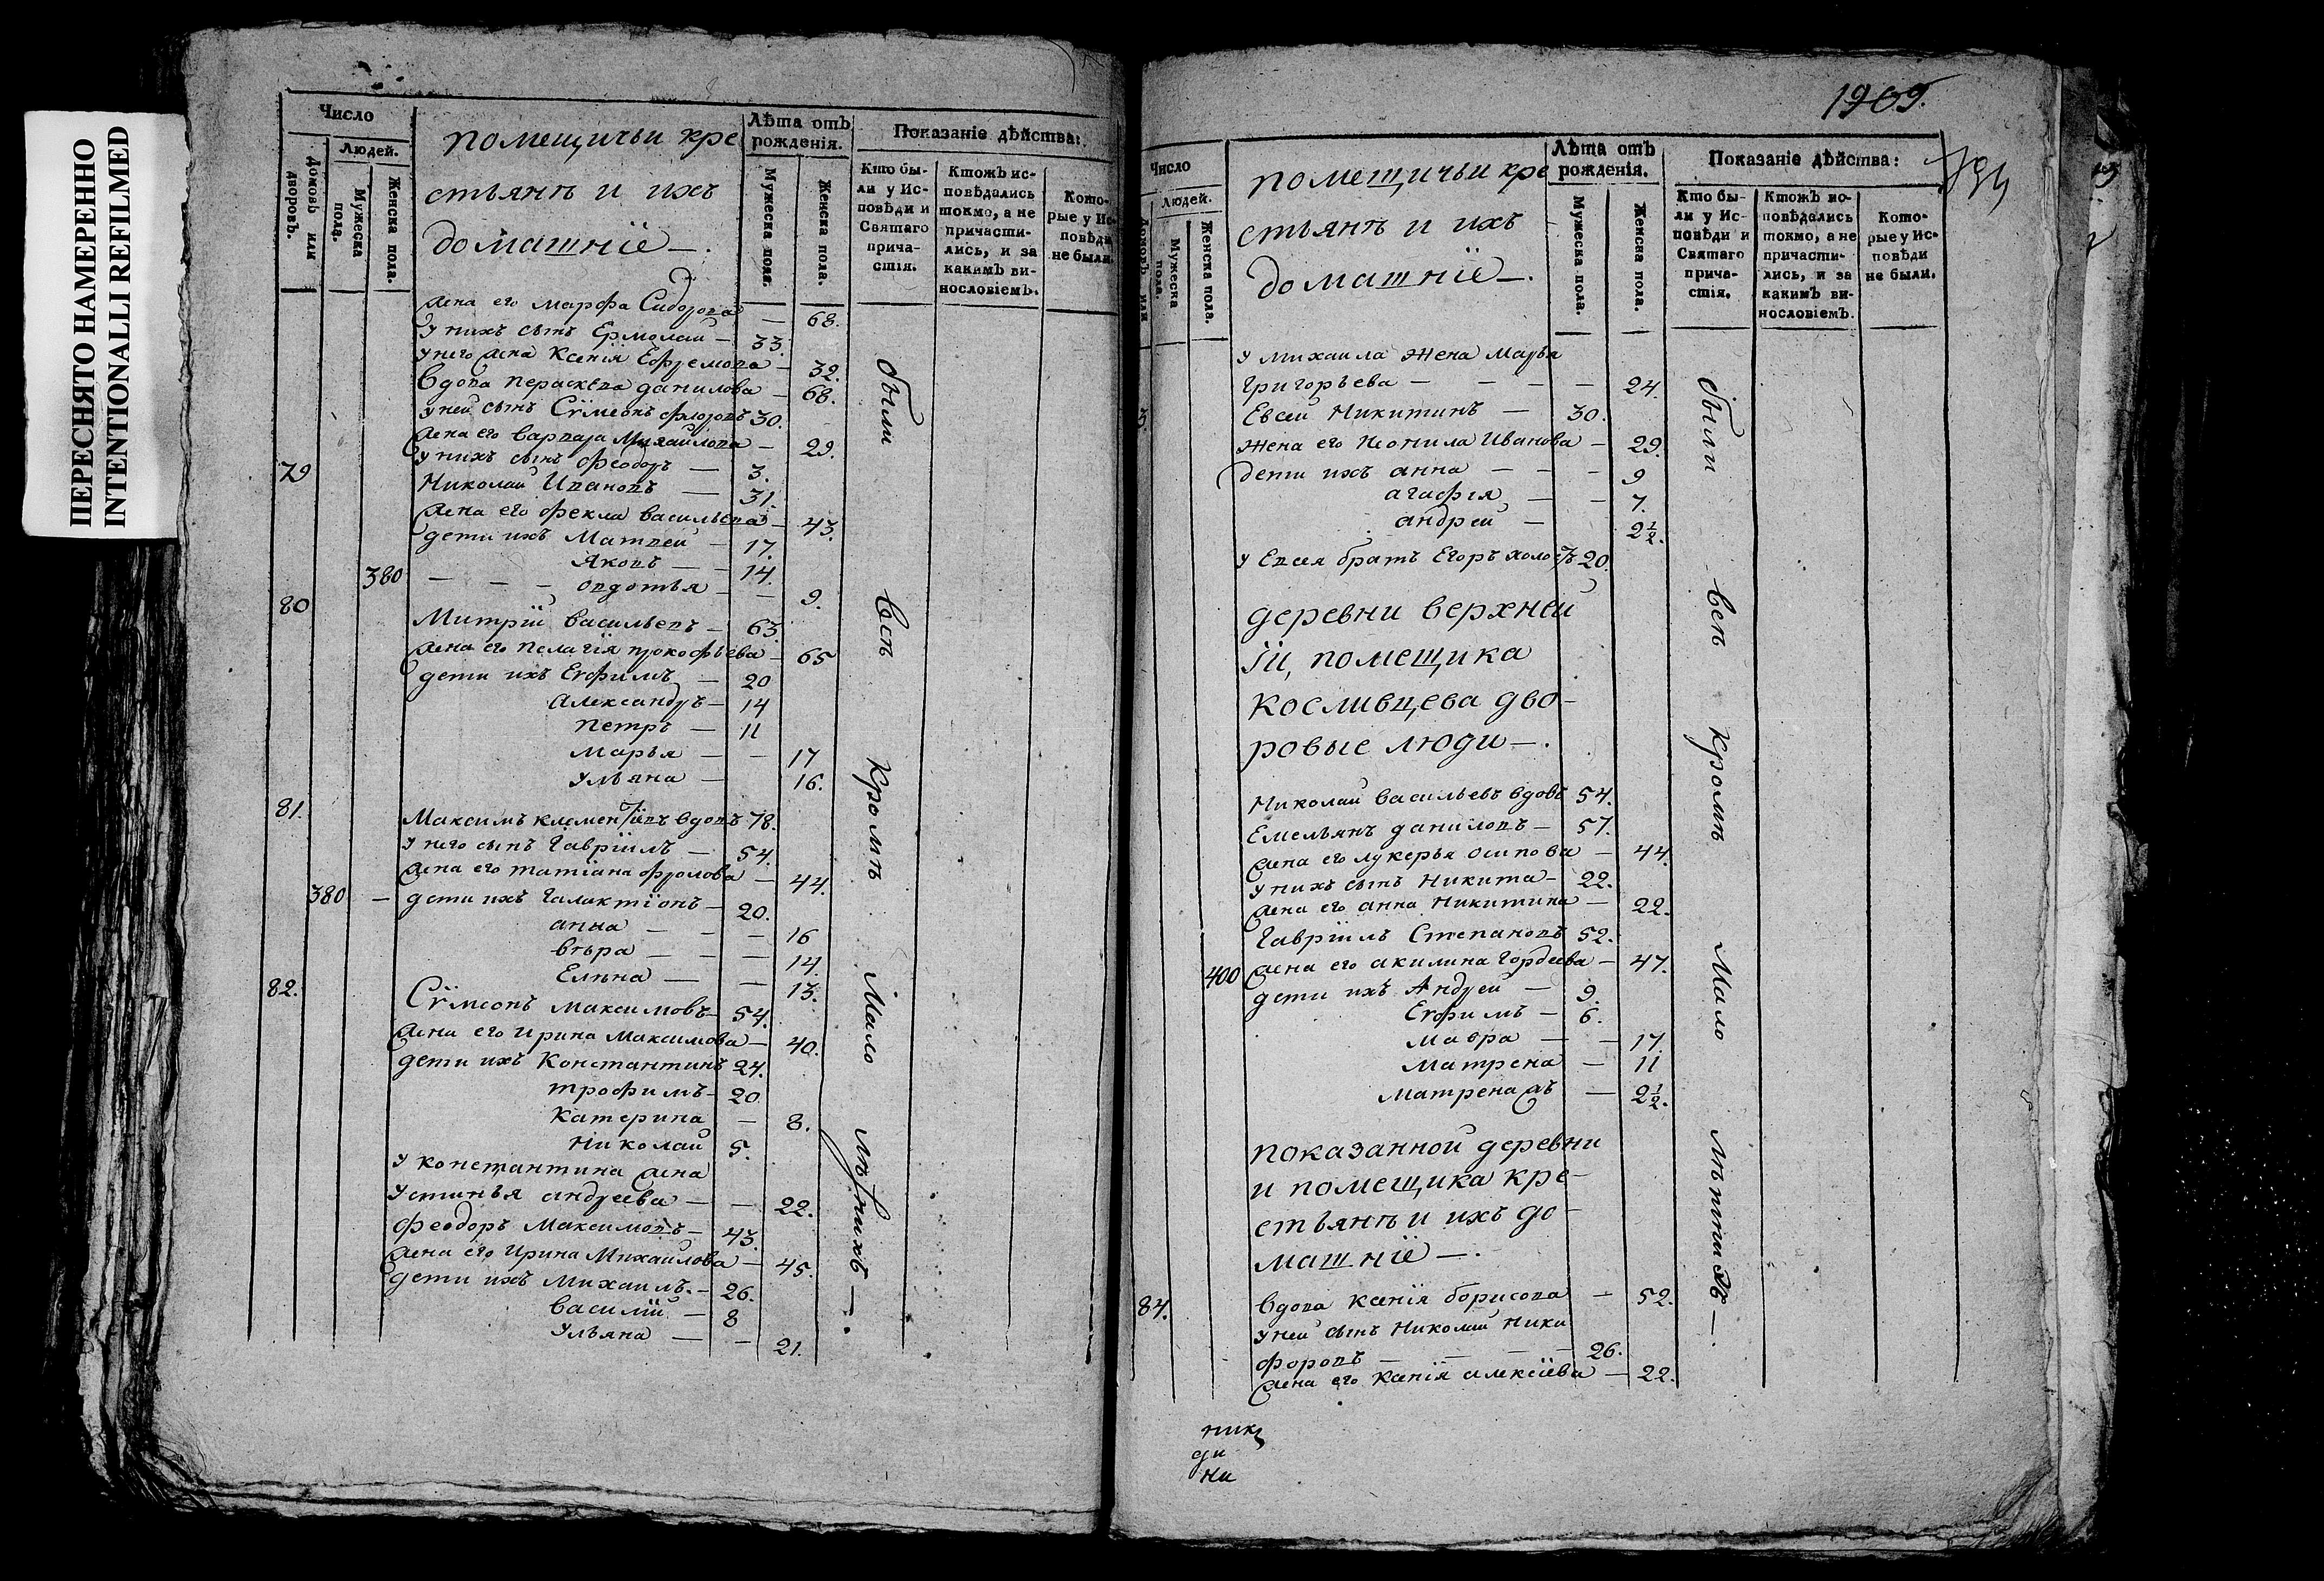 ПЕРЕСНЯТО НАМЕРЕННО
INTENTIONALLI REFILMED
Число
Людей.
Домовъ или дворовъ.
Мужеска пола.
Женска пола.
помещичьи кре
стьянѣ и ихъ
домашнїе —.
Лѣта отъ рожденія.
Мужеска пола.
Женска пола.
Показаніе дѣйства:
Кто бы-
ли у Ис-
повѣди и
Святаго
прича-
стія.
Ктожъ ис-
повѣдались
токмо, а не
причасти-
лись, и за
какимъ ви-
нословіемъ.
Кото-
рые у Ис-
повѣди
не были.
жена его Марфа Сидорова — 68.
У нихъ сынъ Ермолай — 33.
У него жена Ксенія Ефремова — 32.
Вдова Параскева данилова — 68.
У ней сынъ Сѵмеонъ Фроловъ 30.
жена его Варвара Михайлова — 29.
У нихъ сынъ Феодоръ — 3.
79 Николай Ивановъ — 31.
жена его Фекла васильева — 43.
дети ихъ Матвей — 17.
Яковъ — 14.
380 — — — овдотья — — 9.
80 Митрїй васильевъ — 63.
жена его Пелагїя прокофьева — 65
дети ихъ Еѵфимъ — 20
Александръ — 14
Петръ — 11
Марья — — 17
Ульяна — 16.
81. Максимъ клементїевъ вдовъ 78.
У него сынъ Гаврїилъ — 54.
жена его татіана Фролова — 44.
380 — дети ихъ Галактїонъ — 20.
анна — — — 16
вѣра — — — 14.
Елѣна — — 13.
82. Сѵмеонъ Максимовъ — 54.
жена его Ирина Максимова — 40.
дети ихъ Константинъ 24.
трофимъ — 20
Катерина — 8.
Николай 5.
У константина жена
Устинья андреева — — 22.
Феодоръ Максимовъ — 43.
жена его Ирина Михайлова — 45.
дети ихъ Михаилъ. — 26.
василїй — 8
Ульяна — — 21.
были всѣ кромѣ Мало лѣтнихъ —.
1909.
Число
Людей.
Домовъ или
Мужеска пола.
Женска пола.
помещичьи кре
стьянѣ и ихъ
домашнїе —.
Лѣта отъ рожденія.
Мужеска пола.
Женска пола.
Показаніе дѣйства:
Кто бы-
ли у Ис-
повѣди и
Святаго
прича-
стія.
Ктожъ ис-
повѣдались
токмо, а не
причасти-
лись, и за
какимъ ви-
нословіемъ.
Кото-
рые у Ис-
повѣди
не были.
У михаила жена Марья
Григорьева — — — — 24.
3. Евсей Никитинъ — 30.
жена его Неонила Иванова — 29.
дети ихъ анна — — — 9
агафїя — — 7.
андрей — 2½.
У Евсея братъ Егоръ холостъ 20.
деревни верхней
їи, помещика
косливцева дво-
ровые люди —.
Николай васильевъ вдовъ 54.
Емельянъ даниловъ — 57.
жена его лукерья осипова — 44.
У нихъ сынъ Никита — 22.
жена его анна Никитина — 22.
Гаврїилъ Степановъ 52.
400 жена его акилина Гордеева — 47.
дети ихъ Андрей — 9.
Еѵфимъ — 6.
Мавра — — 17.
Матрена — 11
Матрена жъ — 2½.
показанной деревни
и помещика кре-
стьянѣ и ихъ до-
машнїе —.
84. вдова ксенїя борисова — 52.
У ней сынъ Николай Ники
форовъ — — — — 26.
жена его Ксенїя алексїева — 22.
были всѣ кромѣ Мало лѣтнихъ —.